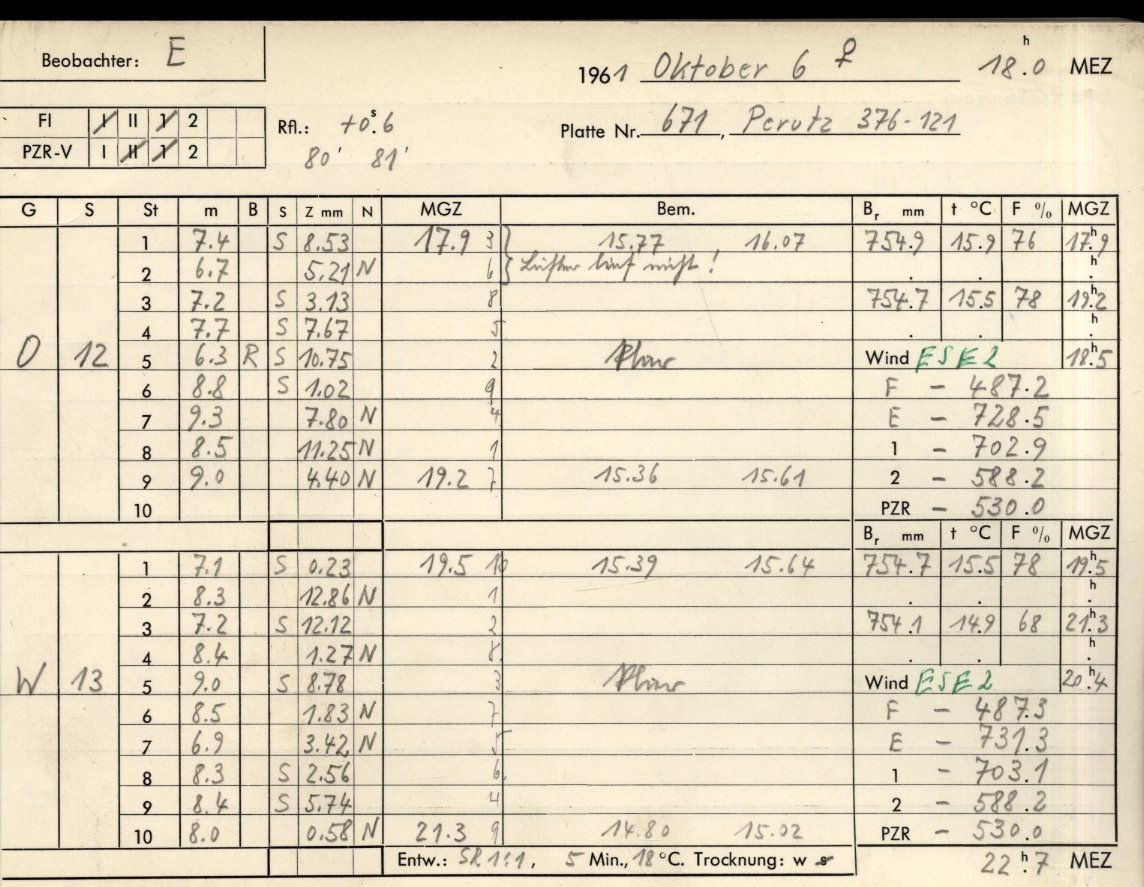 Beobachter: E
1961 Oktober 6 ♀ 18.0 h MEZ
FI I II 1 2
PZR-V I II 1 2
Rfl.: +0.6 s
80' 81'
Platte Nr. 671, Perutz 376-121
G S St m B S Z mm N MGZ Bem. Br mm t °C F % MGZ
1 7.4 S 8.53 17.9 3 15.77 16.07 754.9 15.9 76 17.9 h
2 6.7 5.21 N 6 Lüfter lief nicht! . . . h
3 7.2 S 3.13 8 754.7 15.5 78 19.2 h
4 7.7 S 7.67 5 . . . h
O 12 5 6.3 R S 10.75 2 Wind ESE 2 18.5 h
6 8.8 S 1.02 9 F - 487.2
7 9.3 7.80 N 4 E - 728.5
8 8.5 11.25 N 1 1 - 702.9
9 9.0 4.40 N 19.2 7 15.36 15.61 2 - 588.2
10 PZR - 530.0
Br mm t °C F % MGZ
1 7.1 S 0.23 19.5 10 15.39 15.64 754.7 15.5 78 19.5 h
2 8.3 12.86 N 1 . . . h
3 7.2 S 12.12 2 754.1 14.9 68 21.3 h
4 8.4 1.27 N 8 . . . h
W 13 5 9.0 S 8.78 3 Wind ESE 2 20.4 h
6 8.5 1.83 N 7 F - 487.3
7 6.9 3.42 N 5 E - 731.3
8 8.3 S 2.56 6 1 - 703.1
9 8.4 S 5.74 4 2 - 588.2
10 8.0 0.58 N 21.3 9 14.80 15.02 PZR - 530.0
Entw.: SR 1:1, 5 Min., 18 °C. Trocknung: w s
22.7 h MEZ